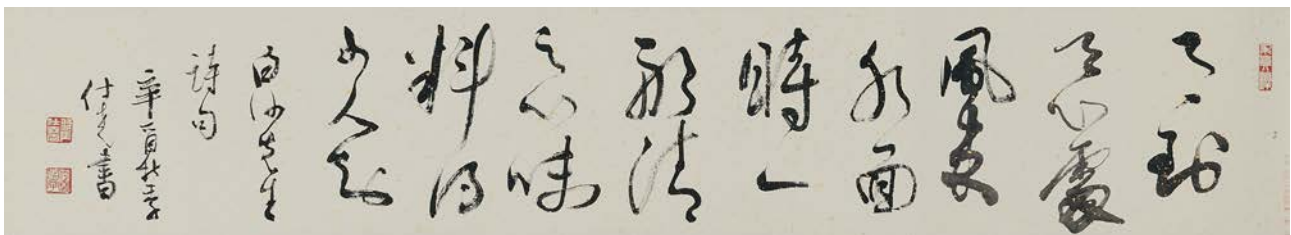 月到
天心處
風來
水面
時一
般清
意味
料得
少人知
白沙先生
詩句
辛酉秋
光書